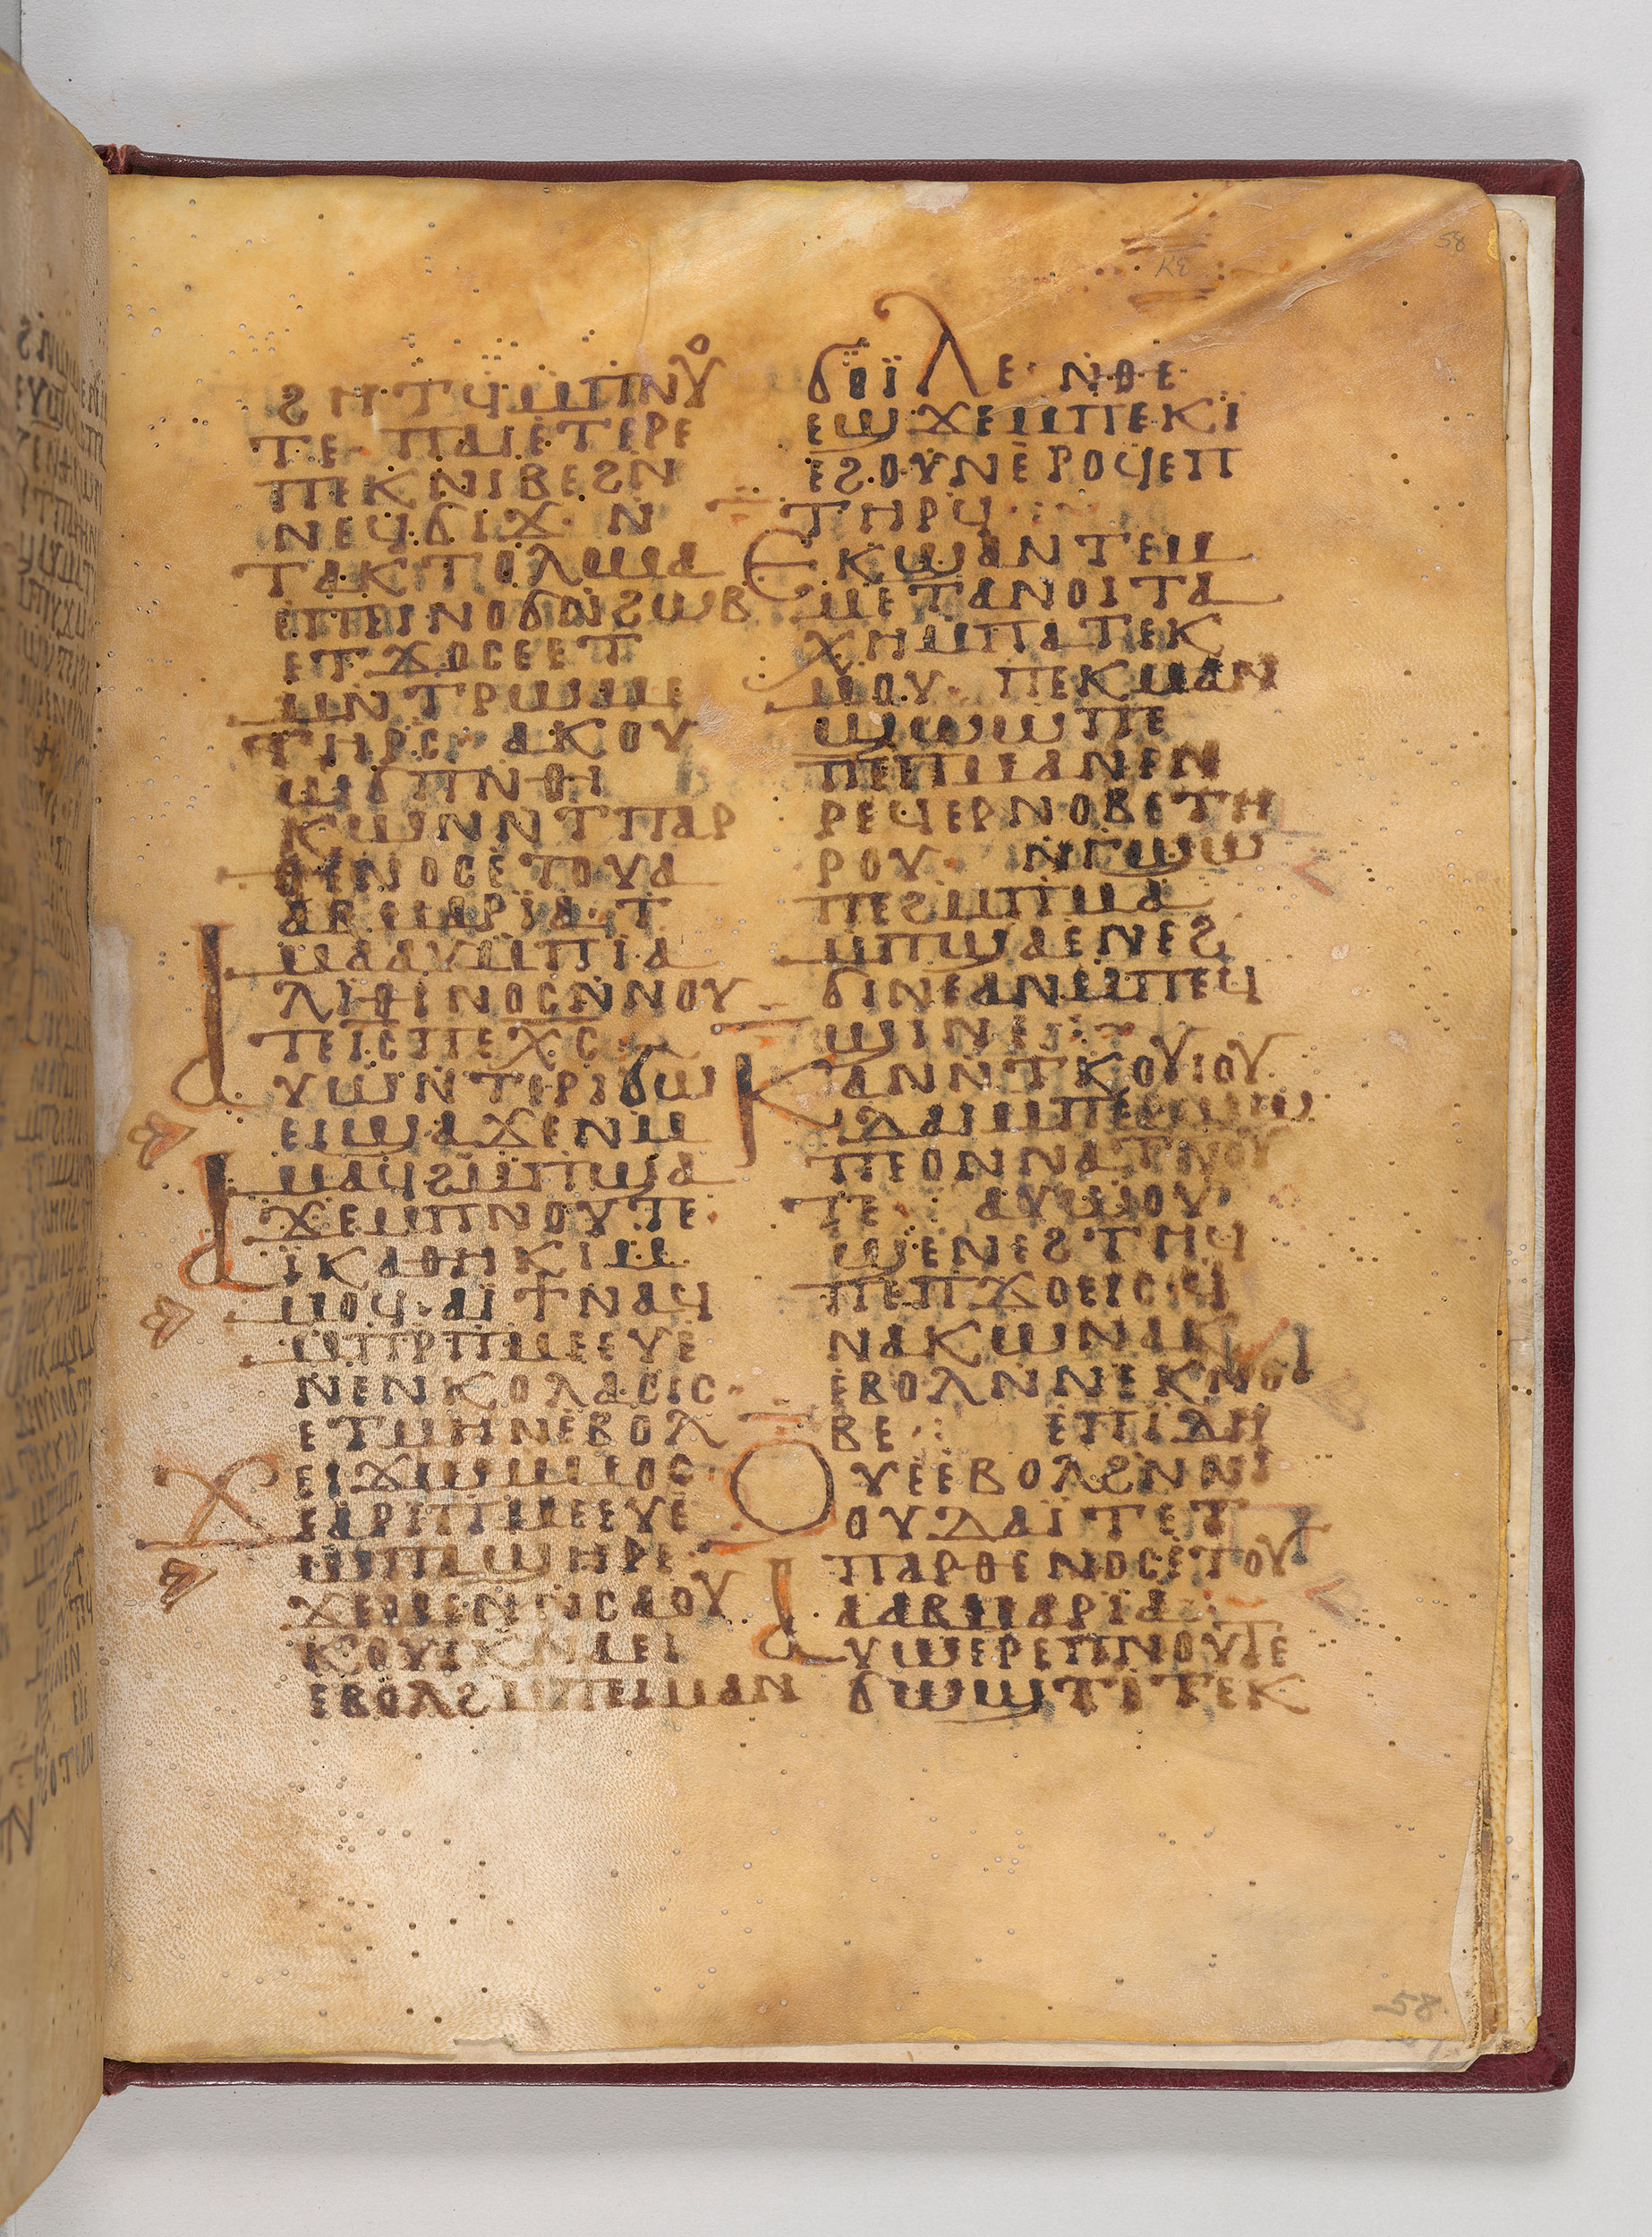 58
ⲕⲉ
ϩⲏⲧϥⲙⲡⲛⲟⲩ
ⲧⲉ· ⲡⲁⲓⲉⲧⲉⲣⲉ
ⲡⲉⲕⲛⲓⲃⲉϩⲛ
ⲛⲉϥϭⲓϫ· ⲛ
ⲧⲁⲕⲧⲟⲗⲙⲁ
ⲉⲡⲉⲓⲛⲟϭⲛϩⲱⲃ
ⲉⲧϫⲟⲥⲉⲉⲧ
ⲙⲛⲧⲣⲱⲙⲉ
ⲧⲏⲣⲥ· ⲁⲕⲟⲩ
ⲱϭⲡⲛⲑⲓ
ⲕⲱⲛⲛⲧⲡⲁⲣ
ⲑⲉⲛⲟⲥⲉⲧⲟⲩⲁ
ⲁⲃⲙⲁⲣⲓⲁ· ⲧ
ⲙⲁⲁⲩⲙⲡⲓⲁ
ⲗⲓⲑⲓⲛⲟⲥⲛⲛⲟⲩ
ⲧⲉⲓⲥⲡⲉⲭⲥ
ⲁⲩⲱⲛⲧⲉⲣⲓϭⲱ
ⲉⲓϣⲁϫⲉⲛⲙ
ⲙⲁϥϩⲙⲡϣⲁ
ϫⲉⲙⲡⲛⲟⲩⲧⲉ·
ⲁⲓⲕⲁⲑⲏⲕⲓⲙ
ⲙⲟϥ· ⲁⲓϯⲛⲁϥ
ⲙⲡⲣⲡⲙⲉⲉⲩⲉ
ⲛⲉⲛⲕⲟⲗⲁⲥⲓⲥ·
ⲉⲧⲙⲏⲛⲉⲃⲟⲗ
ϫⲉⲓϫⲱⲙⲙⲟⲥ·
ⲉⲁⲣⲓⲡⲙⲉⲉⲩⲉ
ⲙⲡⲁϣⲏⲣⲉ·
ϫⲉⲙⲉⲛⲛⲥⲁⲟⲩ
ⲕⲟⲩⲓⲕⲛⲁⲉⲓ
ⲉⲃⲟⲗϩⲙⲡⲉⲓⲙⲁⲛ
ϭⲟⲓⲗⲉ· ⲛⲑⲉ
ⲉϣϫⲉⲙⲡⲉⲕⲓ
ⲉϩⲟⲩⲛⲉⲣⲟϥⲉⲡ
ⲧⲏⲣϥ·
ⲉⲕϣⲁⲛⲧⲉⲙ
ⲙⲉⲧⲁⲛⲟⲓⲧⲁ
ⲭⲏⲙⲡⲁⲧⲉⲕ
ⲙⲟⲩ· ⲡⲉⲕⲙⲁⲛ
ϣⲱⲱⲡⲉ
ⲡⲉⲡⲙⲉⲁⲛⲣⲛ
ⲣⲉϥⲉⲣⲛⲟⲃⲉⲧⲏ
ⲣⲟⲩ· ⲛⲅϣⲱ
ⲡⲉϩⲙⲡⲙⲁ
ⲙⲡϣⲁⲉⲛⲉϩ
ϭⲓⲛⲉⲁⲛⲙⲡⲉϥ
ϣⲓⲛⲉ
ⲕⲁⲛⲛⲧⲕⲟⲩⲓⲟⲩ
ⲇⲁⲓⲙⲡⲉⲣϣⲱ
ⲡⲉⲟⲛⲛⲁⲧⲛⲟⲩ
ⲧⲉ· ⲁⲩⲱⲙⲟⲩ
ϣⲉⲛⲉϩⲧⲏϥ
ⲡⲉⲡϫⲟⲉⲓⲥ·ϥ
ⲛⲁⲕⲱⲛⲁⲕ
ⲉⲃⲟⲗⲛⲛⲉⲕⲛⲟ
ⲃⲉ· ⲉⲡⲓⲇⲏ
ⲟⲩⲉⲉⲃⲟⲗϩⲛⲛⲓ
ⲟⲩⲇⲁⲓⲧⲉⲧ
ⲡⲁⲣⲑⲉⲛⲟⲥⲉⲧⲟⲩ
ⲁⲁⲃⲙⲁⲣⲓⲁ·
ⲁⲩⲱⲉⲣⲉⲡⲛⲟⲩⲧⲉ
ϭⲱϣⲧⲓⲧⲉⲕ
58